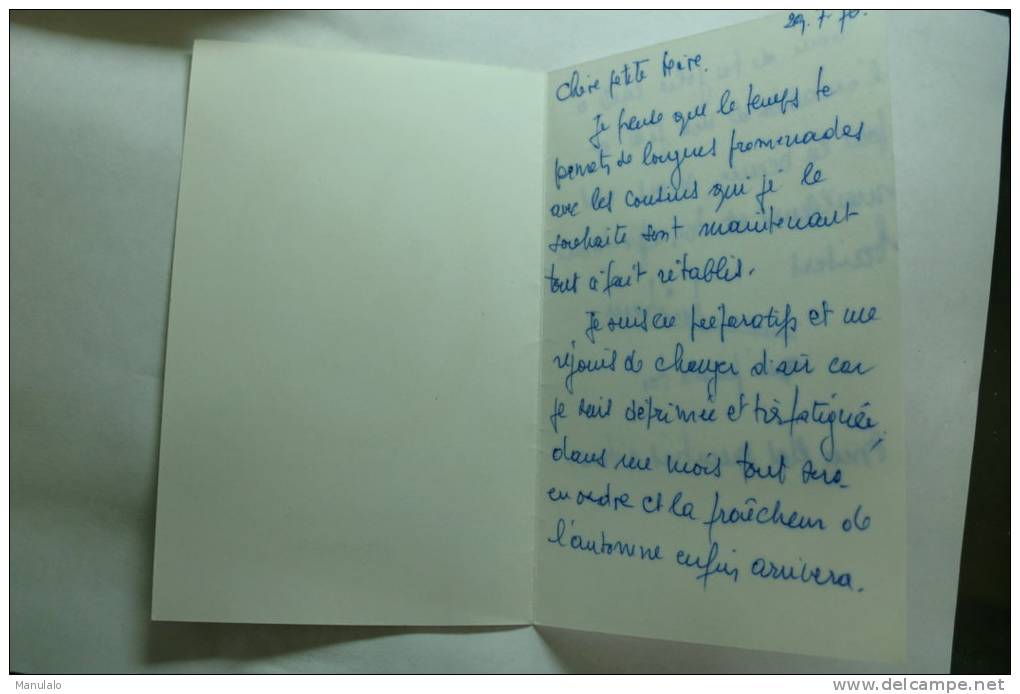 29.7.70.
Chère petite Mère.
Je pense que le temps te
permets de longues promenades
avec les cousins qui je le
souhaite sont maintenant
tout à fait rétablis.
Je suis en préparatifs et me
réjouis de changer d'air car
je suis déprimée et très fatiguée,
dans un mois tout sera
en ordre et la fraîcheur de
l'automne enfin arrivera.
Manulalo
delcampe.net